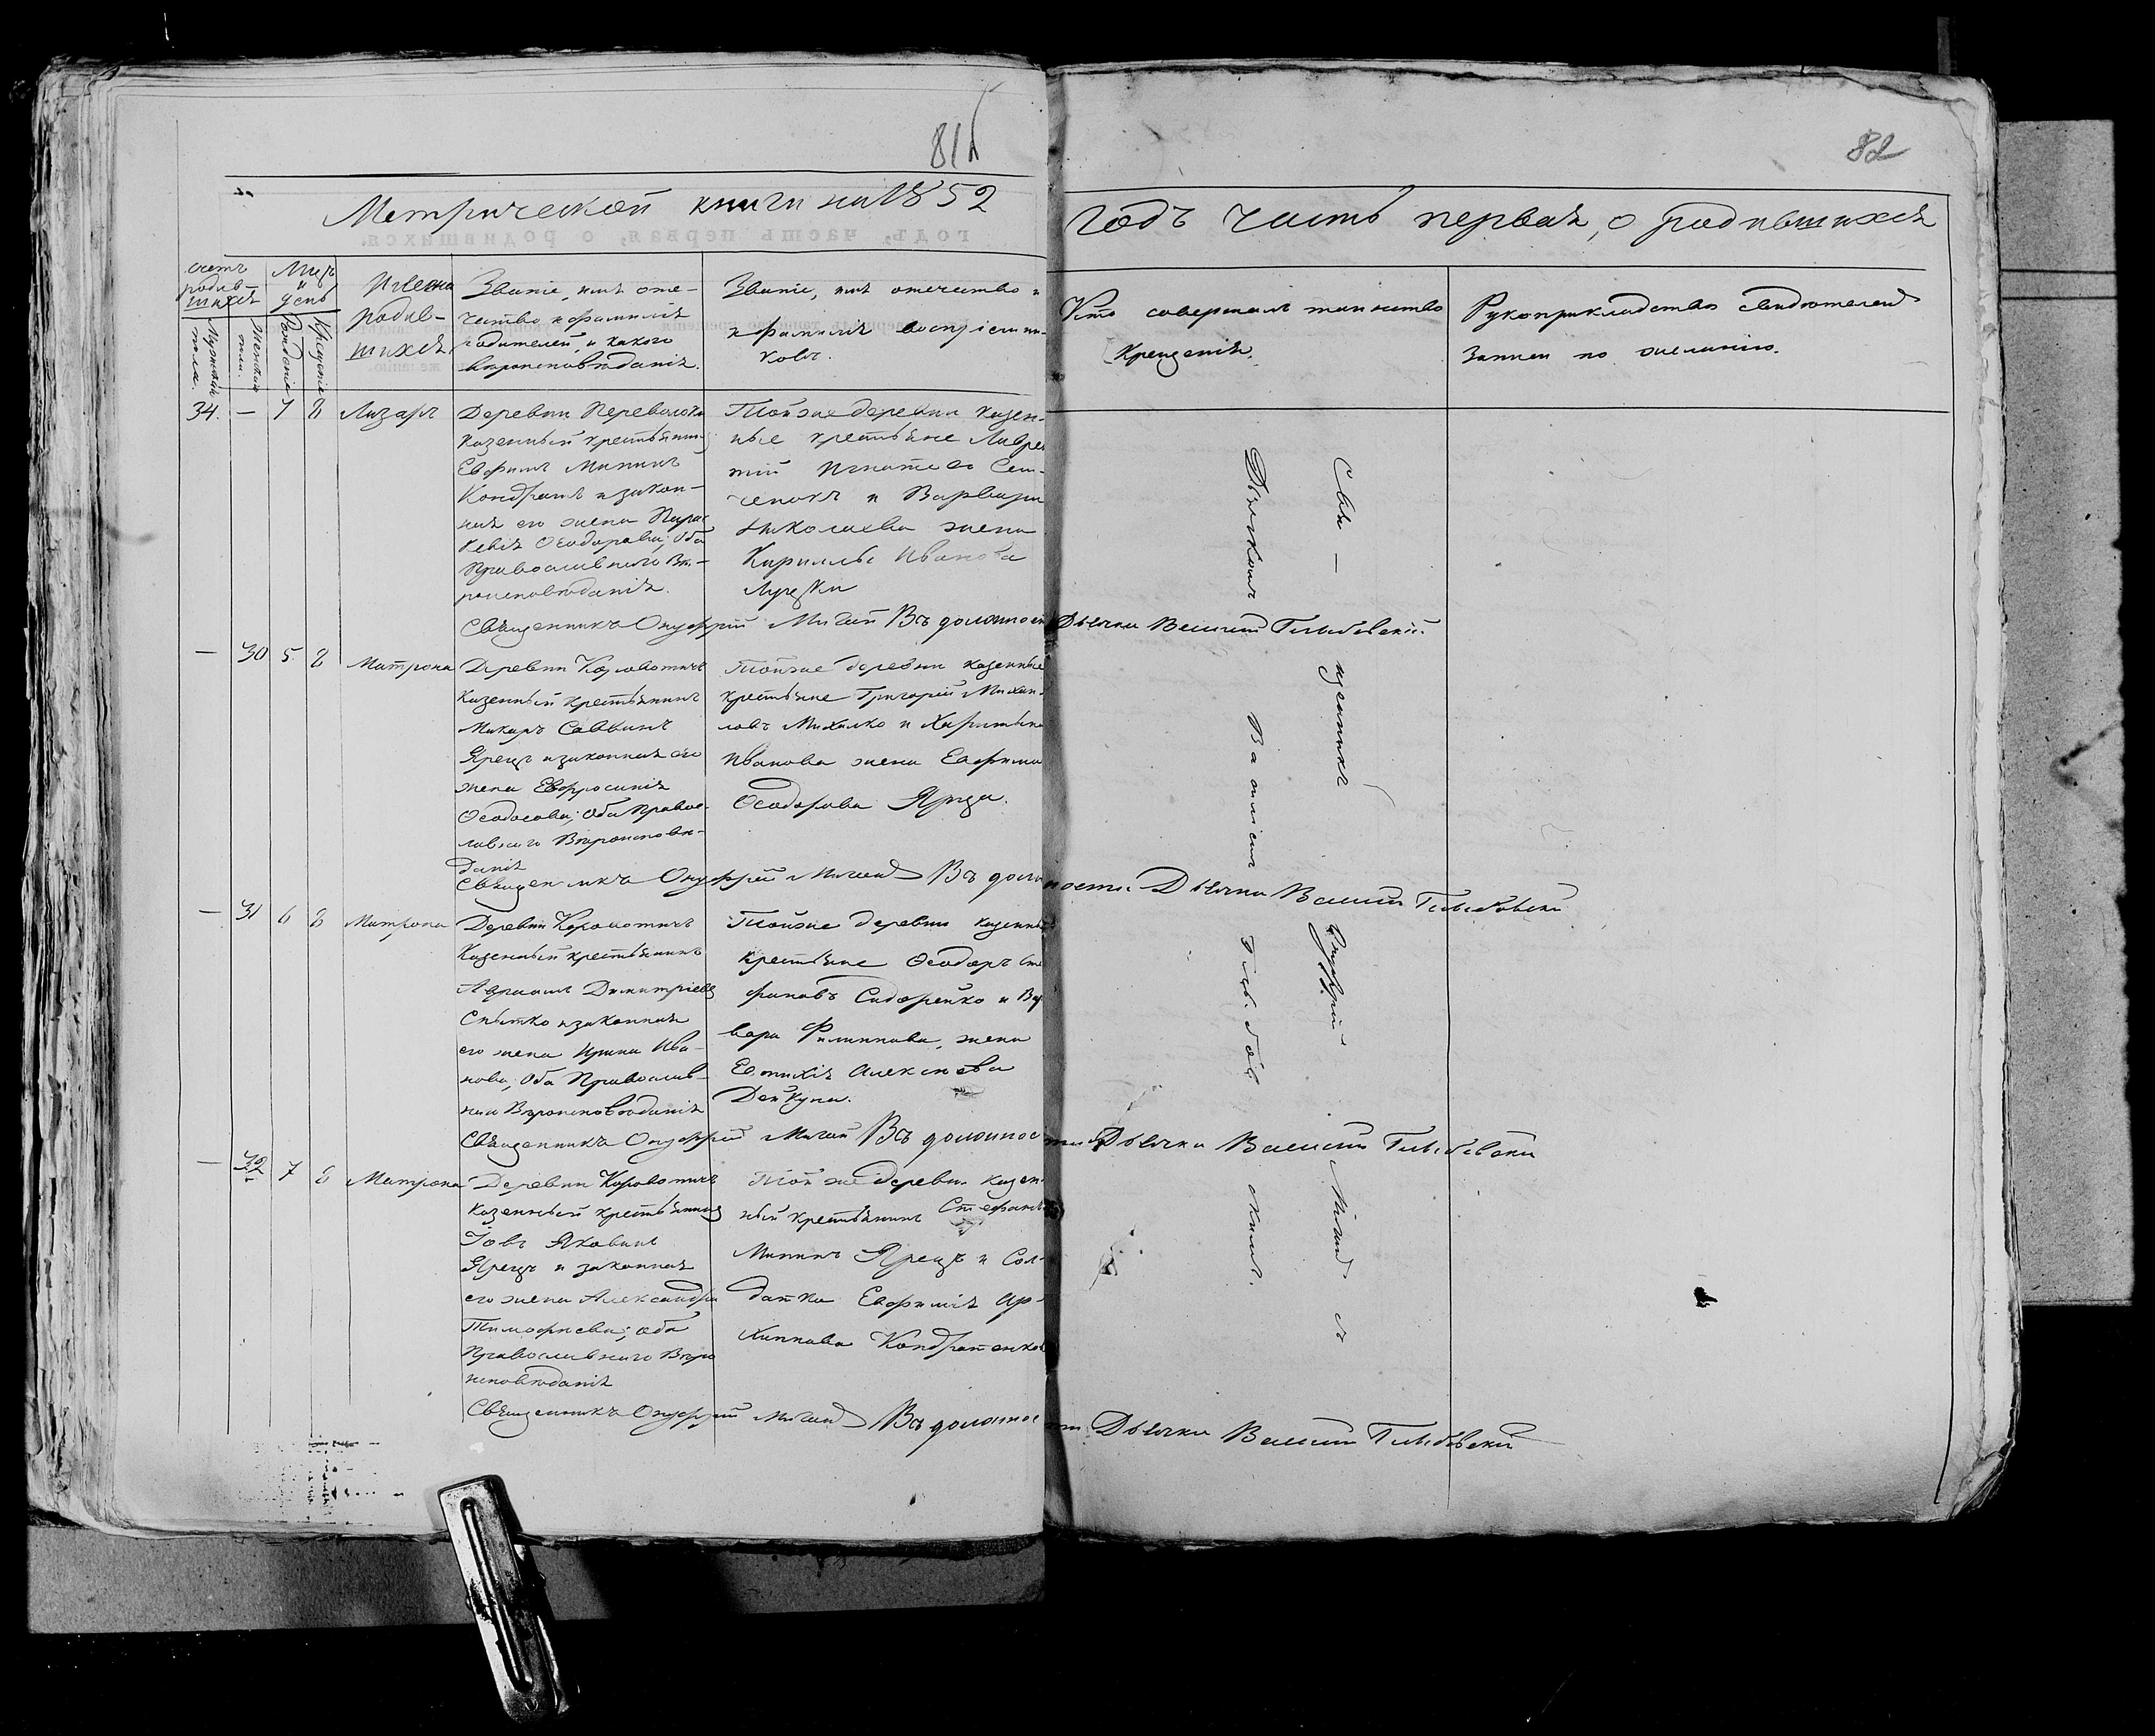 81
82
Метрической книги на 1852
годъ часть первая, о родившихся
счетъ родившихся
Мужеска пола.
Женска пола.
Мцъ и день
Рожденіе
Крещеніе
Имена родив-
шихся
Званіе, имя оте-
чество и фамилія
родителей, и какого
вѣроисповѣданія.
Званіе, имя отечество и
и фамилія воспріемни-
ковъ.
Кто совершалъ таинство
Крещенія.
Рукоприкладство свидѣтелей
записи по желанію.
34. — 8 Лазарь
Деревни
казенный крестьянинъ
Евфимъ Мининъ
Кондратъ и закон-
ная его жена Парас
кевія Ѳеодорова; оба
Православнаго Вѣ-
роисповѣданія.
Тойже деревни казен-
ные крестьяне Лавре
тій Игнатьевъ
и Варвара
Николаева жена
Кирилла Иванова
Священникъ Онуфрій Въ должности Дьячка Василій
— 30 5 8 Матрона
Деревни
казенный крестьянинъ
Макаръ Саввинъ
Ярецъ и законная его
жена Евфросинія
Ѳеодосова; оба Правос-
лавнаго Вѣроисповѣ-
данія
Тойже деревни казенные
крестьяне Григорій Михаи-
ловъ Михалко и Харитына
Иванова жена Евфима
Ѳеодорова Ярца.
Священникъ Онуфрій Въ должности Дьячка Василій
— 31 6 8 Матрона
Деревни
Казенный крестьянинъ
Авраамъ Димитріевъ
Снытко и законная
его жена Ирина Ива-
нова; оба Православ-
наго Вѣроисповѣданія
Тойже деревни казенные
крестьяне Ѳеодоръ Сте
фановъ Сидорейко и Вар
вара Филиппова, жена
Евтихія Алексѣева
Дейкуна.
Священникъ Онуфрій Въ должности Дьячка Василій
— 32 7 8 Матрона
Деревни
казенный крестьянинъ
Іовъ Яковинъ
Ярецъ и законная
его жена Александра
Тимофѣева; оба
Православнаго Вѣро
исповѣданія
Той же деревни казен-
ный крестьянинъ Стефанъ
Мининъ Ярецъ и Сол-
датка Евфимія Ар-
хиппова Кондратенкова
Священникъ Онуфрій Въ должности Дьячка Василій
Священникъ Онуфрій съ
Дьячкомъ Василіемъ